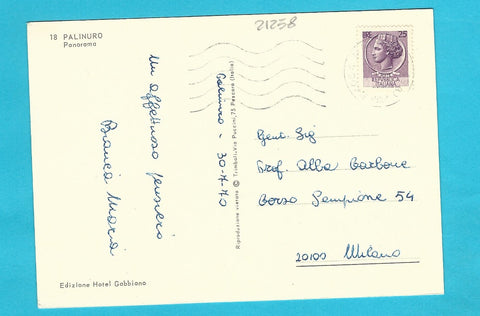 18 PALINURO
Panorama
21258
Un affettuoso pensiero
Bianca Maria
Palinuro - 30-7-70
Riproduzione vietata © Trimboli, Via Puccini, 75 Pescara (Italia)
LIRE 25
REPUBBLICA
ITALIANA
Gent. Sig
Prof. Alba Carbone
Corso Sempione 54
20100 Milano
Edizione Hotel Gabbiano